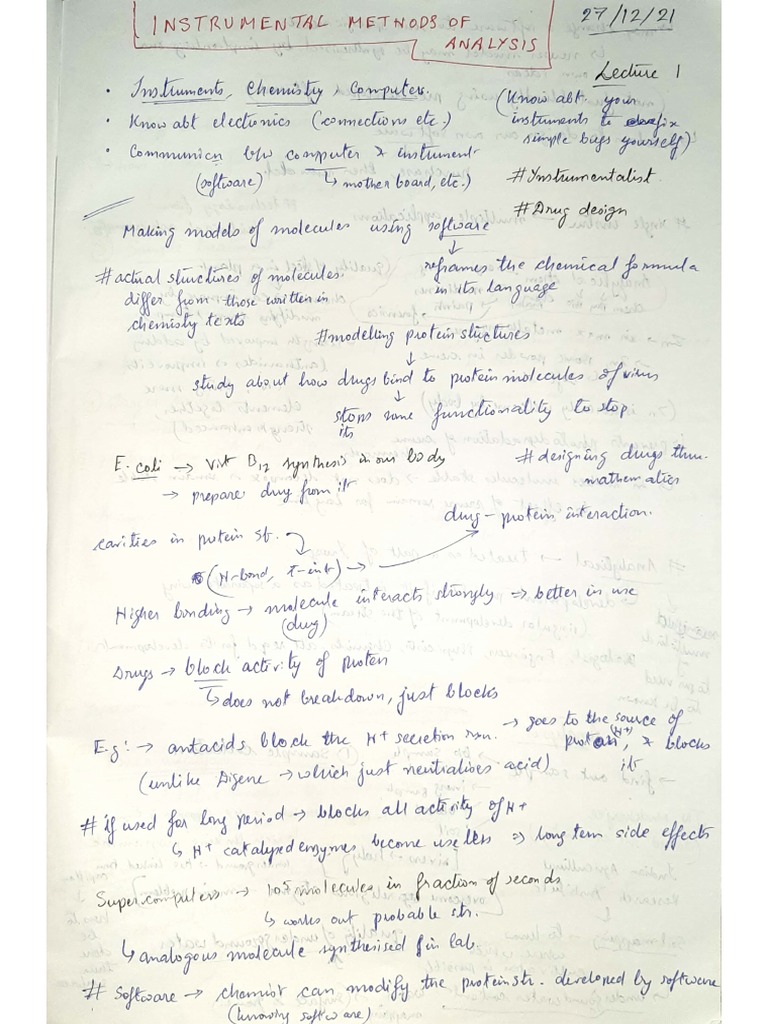 INSTRUMENTAL METHODS OF ANALYSIS
27/12/21
Lecture 1
• Instruments, Chemistry & Computers.
• Know abt electronics (connections etc.)
• Communicn b/w computer & instrument
(software) ↳ mother board, etc.)
(Know abt. your
instruments to fix
simple bugs yourself)
# Instrumentalist.
# Drug design
Making models of molecules using software
↓
reframes the chemical formula
in its language
# actual structures of molecules.
differ from those written in
chemistry texts
# modelling protein structures
↓
study about how drugs bind to protein molecules of virus
↓
stops some functionality to stop
its
E. coli → Vit B12 synthesis in our body
→ prepare drug from it
# designing drugs thru.
mathematics
drug - protein interaction.
cavities in protein st.
(H-bond, π-int) →
Higher bonding → molecule interacts strongly ⇒ better in use
(drug)
Drugs → block activity of protein
↳ does not breakdown, just blocks
E.g: → antacids block the H+ secretion rxn. → goes to the source of
(H+)
proton, & blocks
it
(unlike Digene → which just neutralises acid)
# if used for long period → blocks all activity of H+
↳ H+ catalysed enzymes become useless ⇒ long term side effects
Supercomputers → 105 molecules in fraction of seconds
↳ works out probable str.
↳ analogous molecule synthesised in lab.
# Software → chemist can modify the protein str. developed by software
(knowing software)